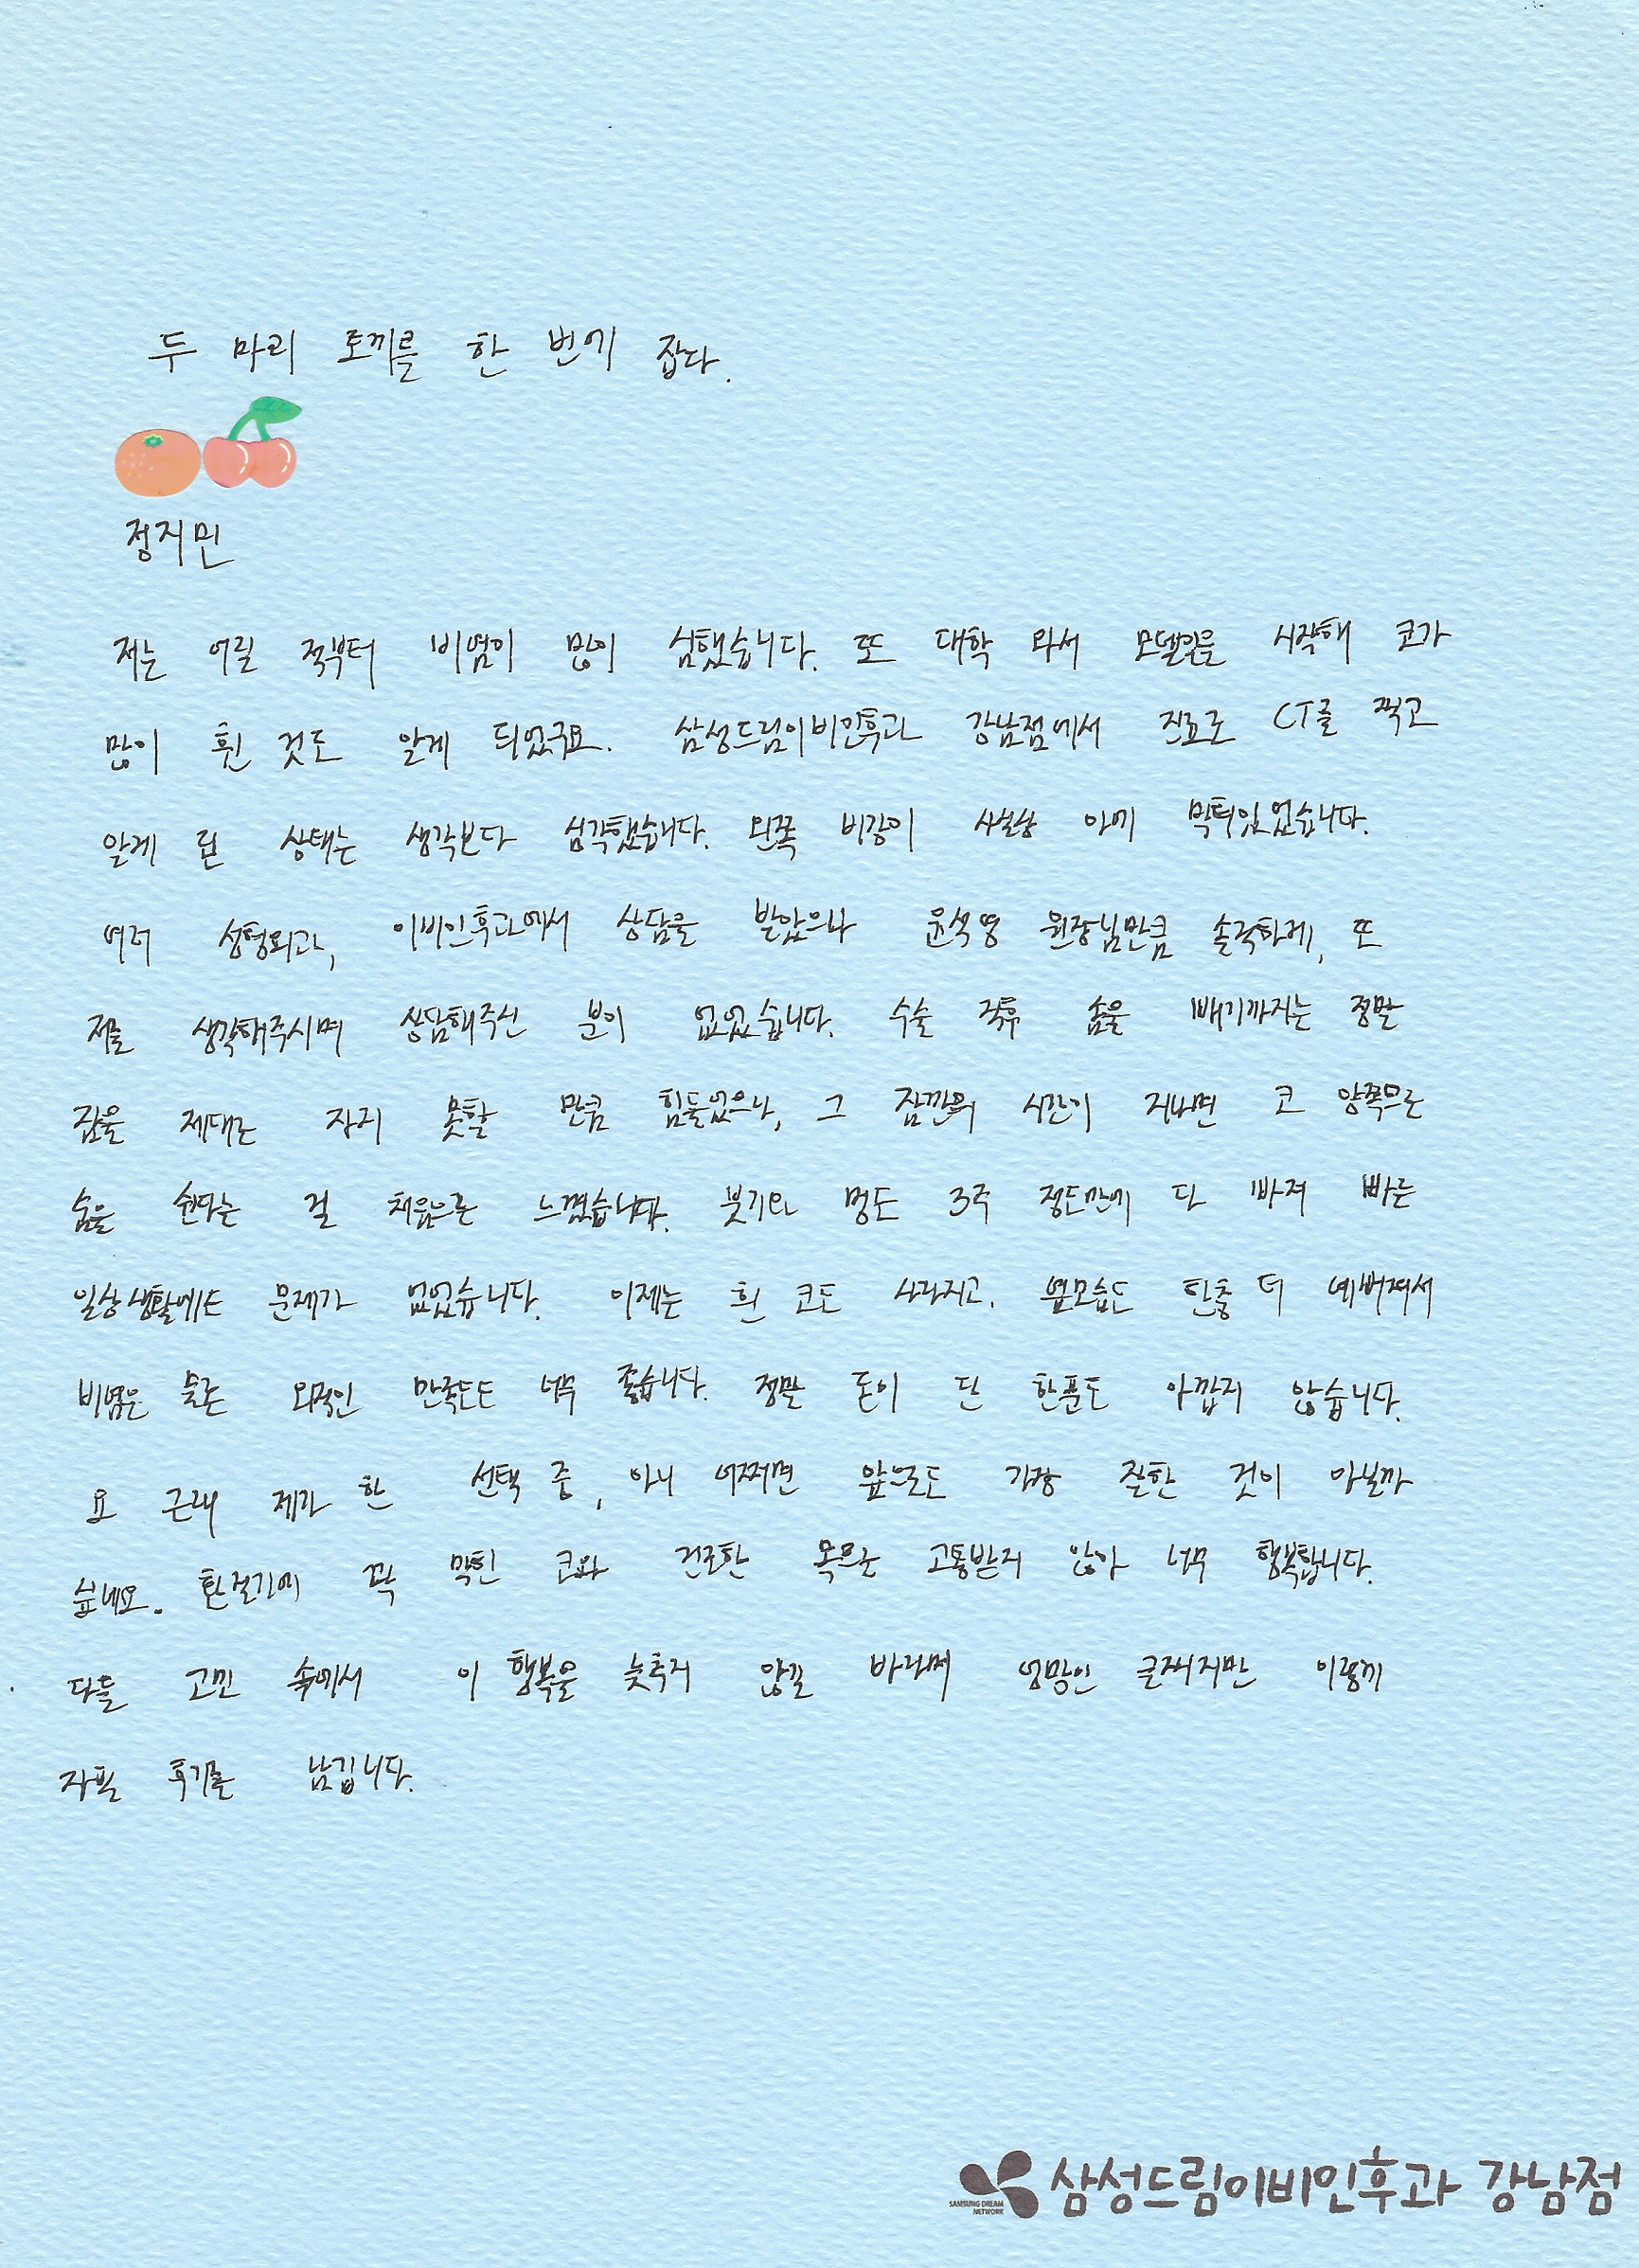 두 마리 토끼를 한 번에 잡다.
정지민
저는 어릴 적부터 비염이 많이 심했습니다. 또 대학 와서 모델일을 시작해 코가
많이 휜 것도 알게 되었구요. 삼성드림이비인후과 강남점에서 진료로 CT를 찍고
알게 된 상태는 생각보다 심각했습니다. 왼쪽 비강이 사실상 아예 막혀있었습니다.
여러 성형외과, 이비인후과에서 상담을 받았으나 윤석영 원장님만큼 솔직하게, 또
저를 생각해주시며 상담해주신 분이 없었습니다. 수술 직후 솜을 빼기까지는 정말
잠을 제대로 자지 못할 만큼 힘들었으나, 그 잠깐의 시간이 지나면 코 양쪽으로
숨을 쉰다는 걸 처음으로 느꼈습니다. 붓기와 멍도 3주 정도만에 다 빠져 빠른
일상생활에도 문제가 없었습니다. 이제는 휜 코도 사라지고, 옆모습도 한층 더 예뻐져서
비염은 물론 외적인 만족도도 너무 좋습니다. 정말 돈이 단 한푼도 아깝지 않습니다.
요 근래 제가 한 선택 중, 아니 어쩌면 앞으로도 가장 잘한 것이 아닐까
싶네요. 환절기에 꽉 막힌 코와 건조한 목으로 고통받지 않아 너무 행복합니다.
다들 고민 속에서 이 행복을 늦추지 않길 바라며 엉망인 글씨지만 이렇게
자필 후기를 남깁니다.
SAMSUNG DREAM NETWORK 삼성드림이비인후과 강남점